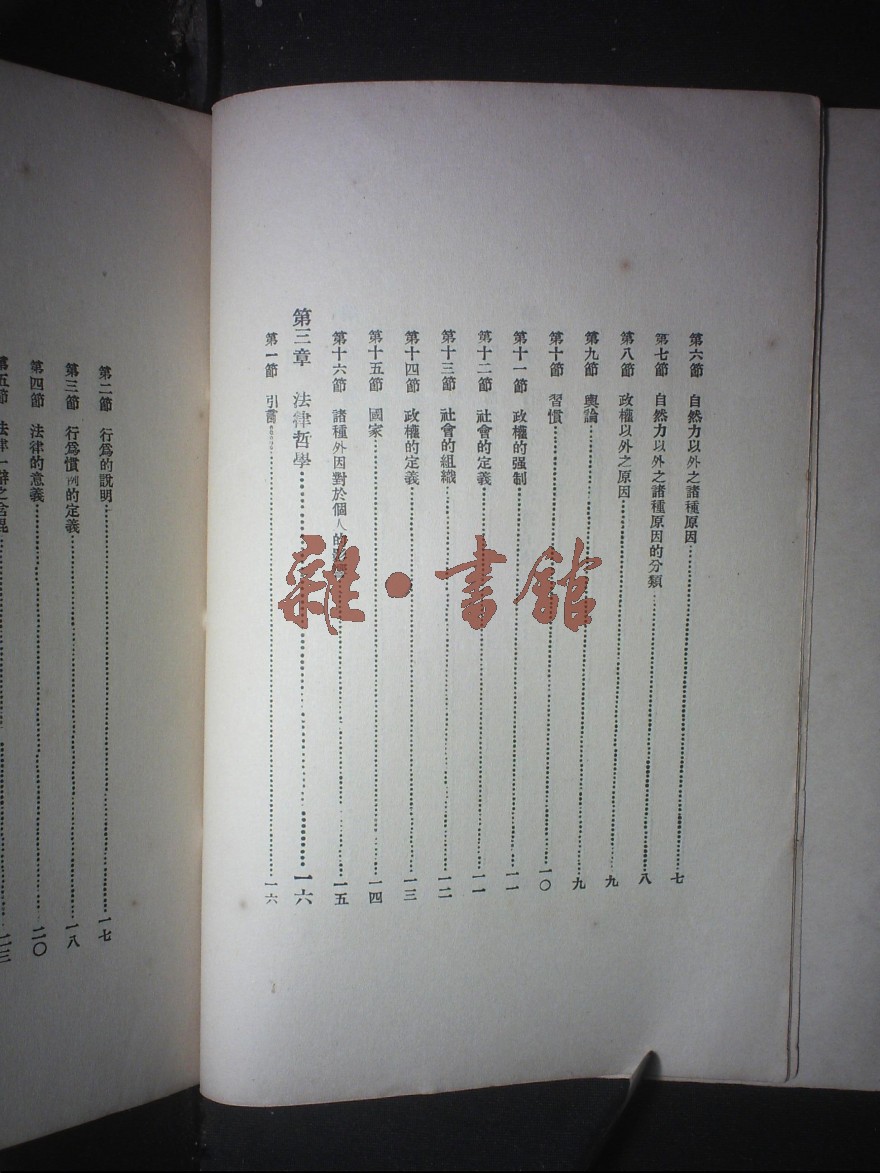 第六節　自然力以外之諸種原因……七
第七節　自然力以外之諸種原因的分類……八
第八節　政權以外之原因……九
第九節　輿論……九
第十節　習慣……一〇
第十一節　政權的强制……一一
第十二節　社會的定義……一一
第十三節　社會的組織……一二
第十四節　政權的定義……一三
第十五節　國家……一四
第十六節　諸種外因對於個人的……一五
第三章　法律哲學……一六
第一節　引言……一六
第二節　行爲的說明……一七
第三節　行爲慣例的定義……一八
第四節　法律的意義……二〇
第五節　法律一辭之含混……二三
雜·書館